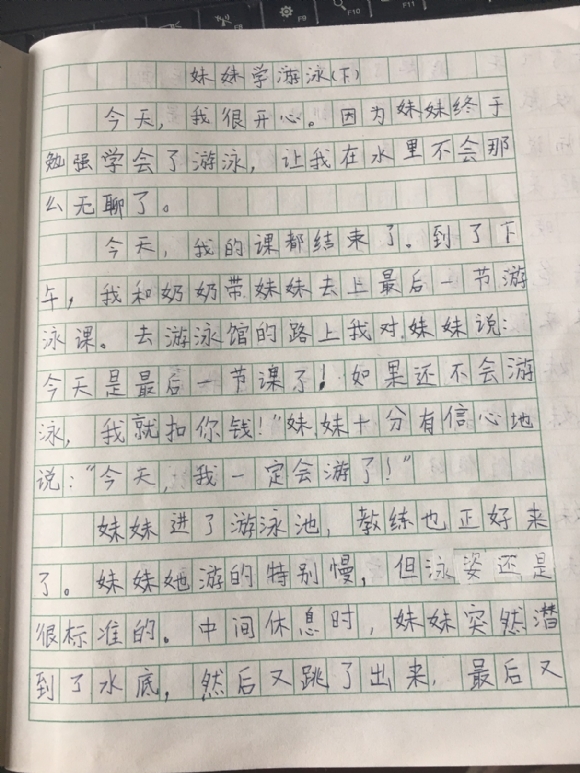 妹妹学游泳(下)
今天，我很开心。因为妹妹终于
勉强学会了游泳，让我在水里不会那
么无聊了。
今天，我的课都结束了。到了下
午，我和奶奶带妹妹去上最后一节游
泳课。去游泳馆的路上我对妹妹说：
今天是最后一节课了！如果还不会游
泳，我就扣你钱！”妹妹十分有信心地
说：“今天，我一定会游了！”
妹妹进了游泳池，教练也正好来
了。妹妹她游的特别慢，但泳姿还是
很标准的。中间休息时，妹妹突然潜
到了水底，然后又跳了出来，最后又